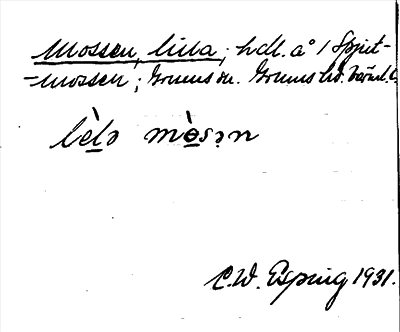 Mossen, lilla; hdl. å / Spjut-
-mossen; Grums sn. Grums hd. Värml. l.
lèlə mòsən
C.W. Esping 1931.